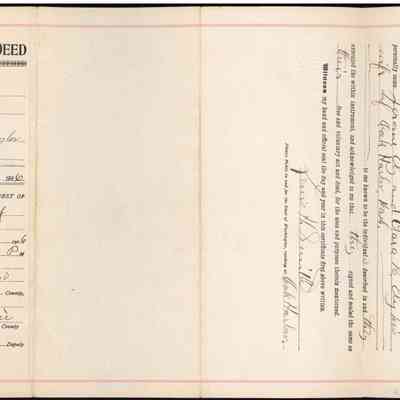 DEED
1906
EST OF
1906
P M
County,
County
Deputy
personally came Jerome Ely and Clara B. Ely his
wife of Oak Harbor, Wash.
to me known to be the individuals described in and they
executed the within instrument, and acknowledged to me that they signed and sealed the same as
their free and voluntary act and deed, for the uses and purposes therein mentioned.
Witness my hand and official seal the day and year in this certificate first above written.
Notary Public in and for the State of Washington, residing at Oak Harbor.